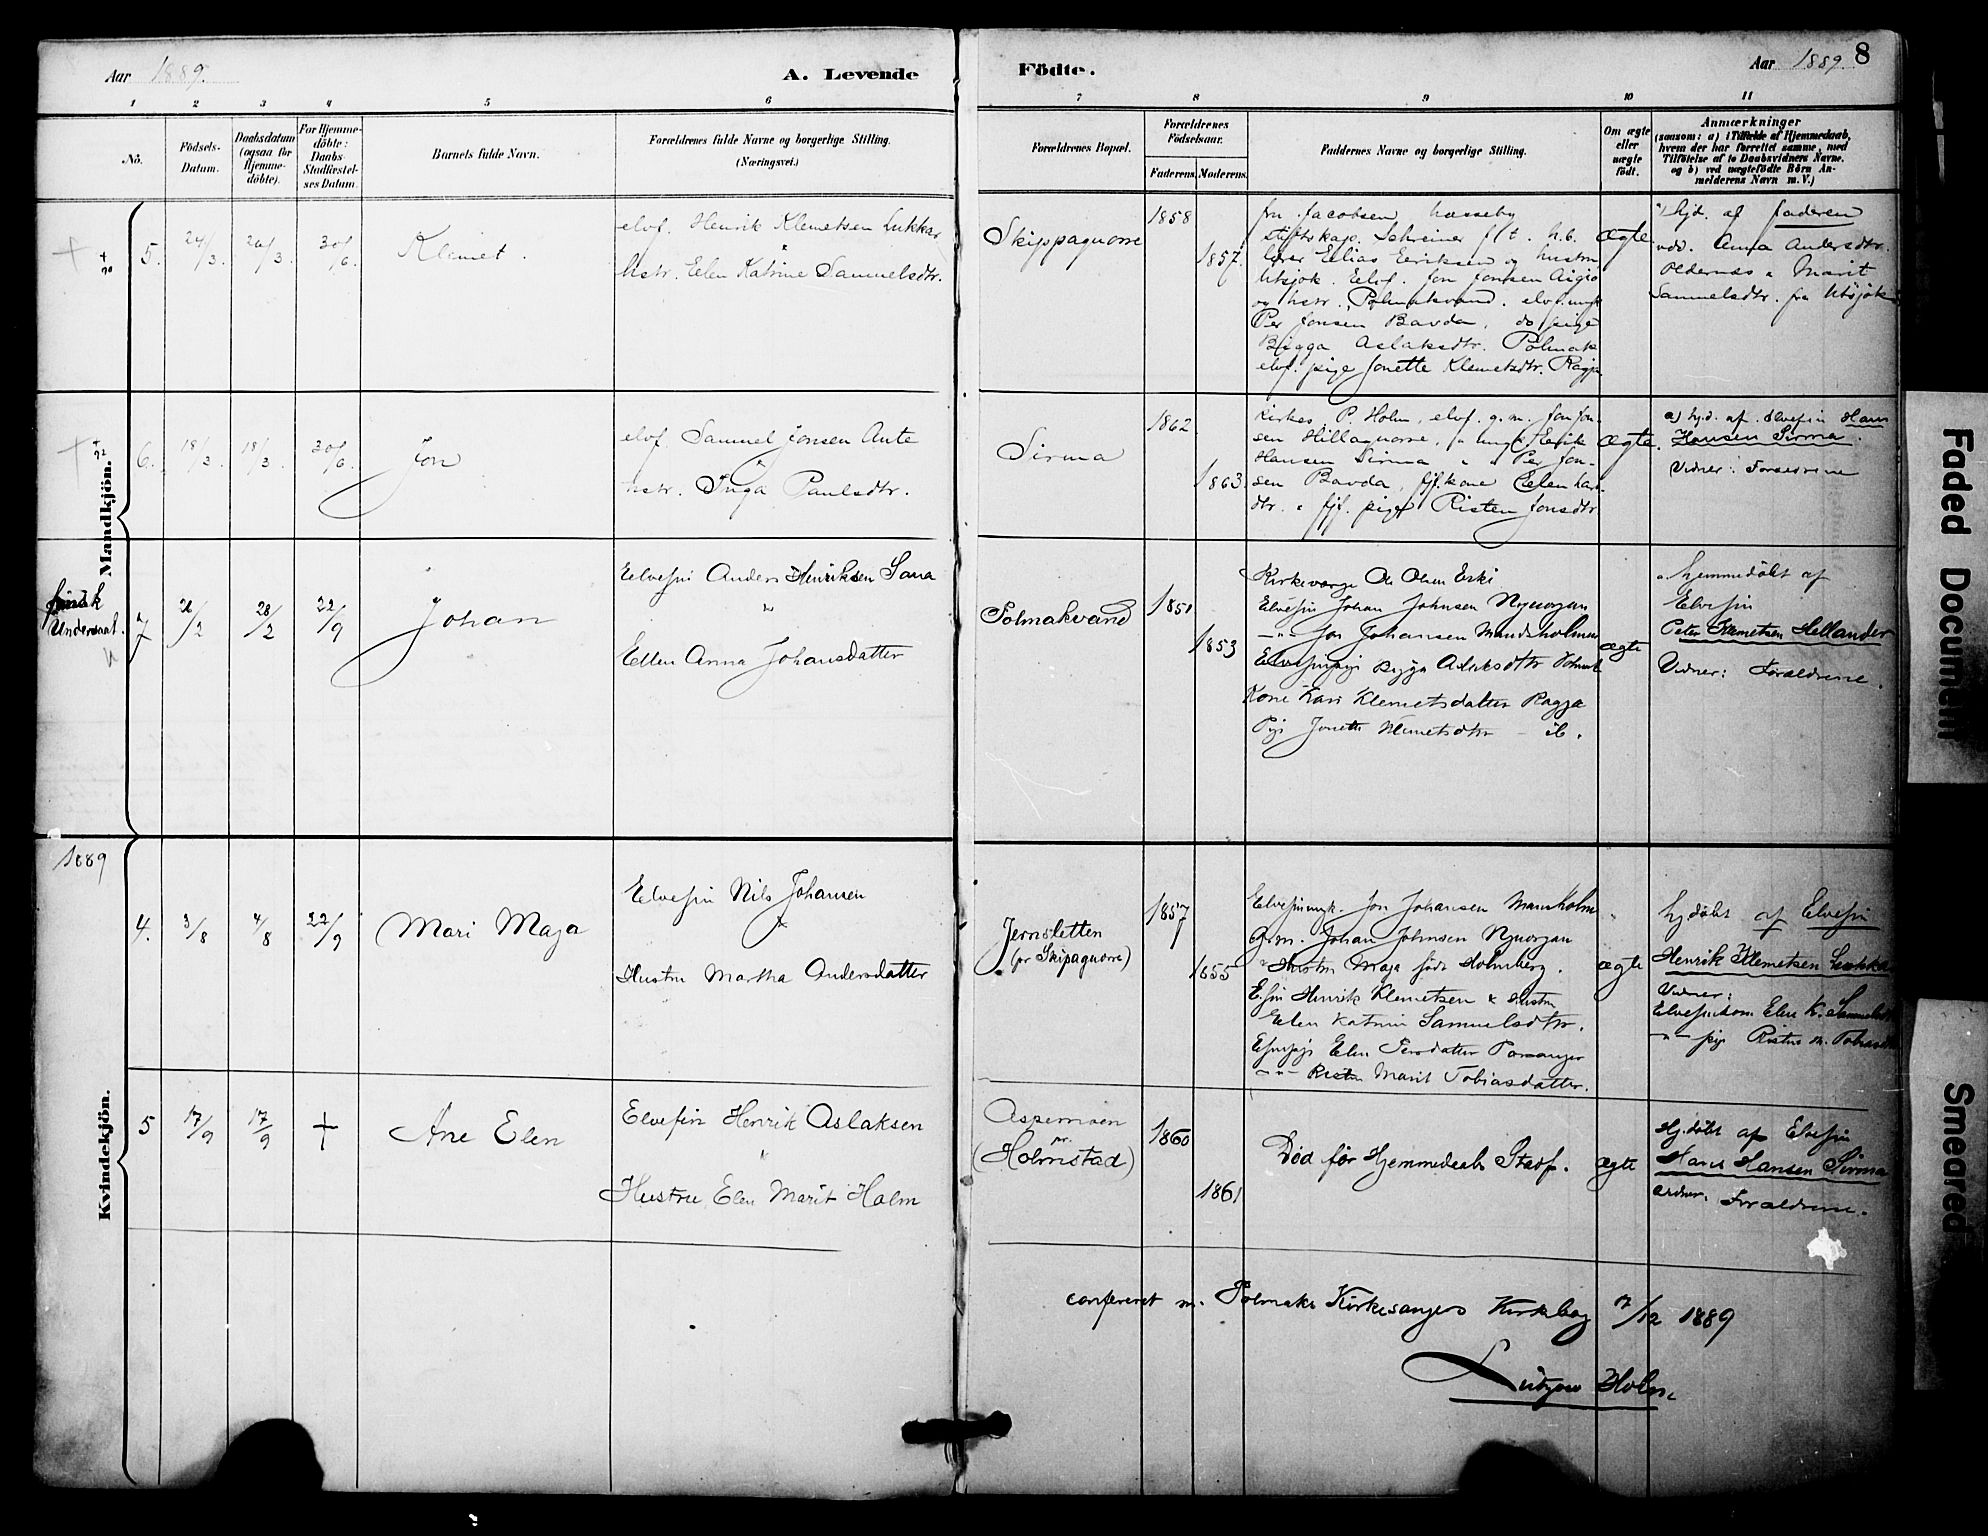 Aar 1889.
A. Levende Födte.
Aar 1889.
8
1 2 3 4 5 6 7 8 9 10 11
No.
Födsels-
Datum.
Daabsdatum
(ogsaa for
Hjemme-
döbte).
For Hjemme-
döbte:
Daabs-
Stadfæstel-
ses Datum.
Barnets fulde Navn.
Forældrenes fulde Navne og borgerlige Stilling.
(Næringsvei.)
Forældrenes Bopæl.
Forældrenes
Födselsaar.
Faderens. Moderens.
Faddernes Navne og borgerlige Stilling.
Om ægte
eller
uægte
födt.
Anmærkninger
(saasom: a) i Tilfælde af Hjemmedaab,
hvem der har forrettet samme, med
Tilföielse af to Daabsvidners Navne,
og b) ved uægtefödte Börn An-
melderens Navn m. V.)
Mandkjön.
5. 24/3. 30/6. Klemet.
elvf. Henrik Klemetsen Lukkar
"
hstr. Elen Katrine Samuelsdtr.
Skippagurre
1858
1857.
Jacobsen
Schreiner
lærer Elias Eriksen og hustru
Utsjok. Elvf. Jon Jonsen Aigio
og hstr. Polmakvand. elvf. ungk
Per Jonsen Bavda, do pige
Bigga Aslaksdtr. Polmak
elvf. pige Jonette Klemetsdtr. Ragja
ægte
hjd. af faderen
vdn. Anna Andersdtr.
Oldernes & Marit
Samuelsdtr. fra Utsjok
6. 18/3. 18/3. 30/6. Jon
elvf. Samuel Jonsen Aute
"
hstr. Inga Paulsdtr.
Sirma
1862
1863.
P. Holm, elvf. g.m. Jon Jon-
sen Hillagurre, " ungk Henrik
Hansen Sirma " " Per Jon-
sen Bavda, fjf. kone Elen Hans-
dtr. " fjf. pige Risten Jonsdtr
ægte.
a) hjd. af elvefin Hans
Hansen Sirma.
Vidner: Forældrene
finsk
Undersaat.
7 28/2 22/9 Johan
Elvefin Anders Henriksen Sara
"
Ellen Anna Johansdatter
Polmakvand
1851
1853
Kirkeværge Ole Olsen Erki
Elvefin Johan Johnsen Nyuorgan
—"— Jon Johansen Mandsholmen
Elvefinpige Bigga Aslaksdtr Polmak
Kone Kari Klemetsdatter Ragja
Pige Jonette Klemetsdtr — ib.
ægte
hjemmedöbt af
Elvefin
Peter Klemetsen Hellander
Vidner: Forældrene.
1889
Kvindekjön.
4. 3/8 4/8 22/9 Mari Maja
Elvefin Nils Johansen
&
Hustru Martha Andersdatter
Jernsletten
(pr Skipagurre)
1857
1855
Elvefinungk. Jon Johansen Mansholm
Grm. Johan Johnsen Nyuorgan
" Hustru Maja födt Holmberg.
E.fin Henrik Klemetsen & Hustru
Elen Katrine Samuelsdtr.
Efinpige Elen Persdatter Porsanger
—"— Risten Marit Tobiasdatter.
ægte
hjdöbt af Elvefin
Henrik Klemetsen Lukkar
Vidner:
Elvefinkone Elen K. Samuelsdtr
—"— pige Risten M. Tobiasdtr
5 17/9 17/9 + Ane Elen
Elvefin Henrik Aslaksen
"
Hustru Elen Marit Holm
Aspemoen
pr.
(Holmstad)
1860
1861
Död för Hjemmedaabs Stadf.
ægte
Hj.döbt af Elvefin
Hans Hansen Sirma
Vidner: Forældrene.
confereret m. Polmaks Kirkesangers Kirkebog 7/12 1889
Lützow Holm.
Faded Document
Smeared